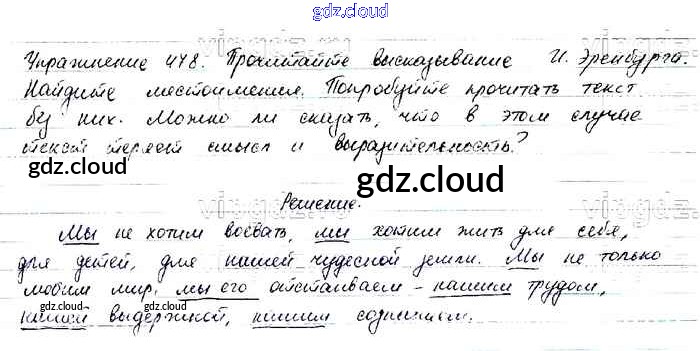 gdz.cloud
Упражнение 478. Прочитайте высказывание И. Эренбурга.
Найдите местоимения. Попробуйте прочитать текст
без них. Можно ли сказать, что в этом случае
текст теряет смысл и выразительность?
gdz.cloud
gdz.cloud
Решение.
Мы не хотим воевать, мы хотим жить для себя,
для детей, для нашей чудесной земли. Мы не только
любим мир, мы его отстаиваем – нашим трудом,
нашей выдержкой, нашим сознанием.
gdz.cloud
gdz.cloud
gdz.cloud